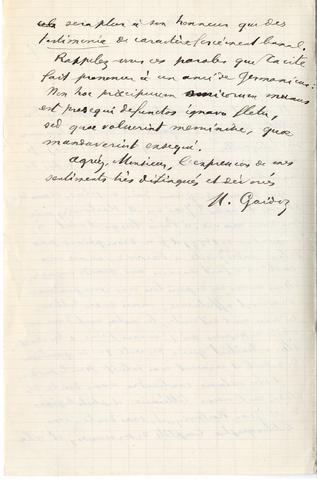 cela sera plus à son honneur que des
testimonia de caractère forcément banal.
Rappelez vous ces paroles que Tacite
fait prononcer à un ami de Germanicus:
Non hoc præcipuum amicorum munus
est prosequi defunctos ignavo fletu,
sed quae voluerint meminisse, quae
mandaverint exsequi.
Agréez, Monsieur, l'expression de mes
sentiments très distingués et dévoués
H. Gaidoz